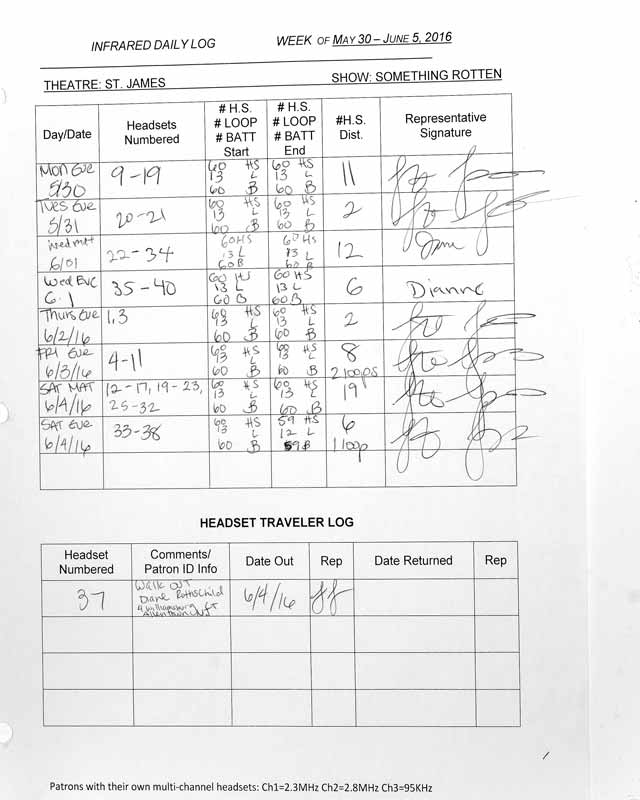 INFRARED DAILY LOG WEEK OF MAY 30 – JUNE 5, 2016
THEATRE: ST. JAMES SHOW: SOMETHING ROTTEN
Day/Date Headsets Numbered # H.S. # LOOP # BATT Start # H.S. # LOOP # BATT End #H.S. Dist. Representative Signature
Mon Eve 5/30 9-19 60 HS 13 L 60 B 60 HS 13 L 60 B 11
Tues Eve 5/31 20-21 60 HS 13 L 60 B 60 HS 13 L 60 B 2
Wed Mat 6/01 22-34 60 HS 13 L 60 B 60 HS 13 L 60 B 12
Wed Eve 6.1 35-40 60 HS 13 L 60 B 60 HS 13 L 60 B 6 Dianne
Thurs Eve 6/2/16 1,3 60 HS 13 L 60 B 60 HS 13 L 60 B 2
FRI Eve 6/3/16 4-11 60 HS 13 L 60 B 60 HS 13 L 60 B 8 2 loops
SAT MAT 6/4/16 12-17, 19-23, 25-32 60 HS 13 L 60 B 60 HS 13 L 60 B 19
SAT Eve 6/4/16 33-38 60 HS 13 L 60 B 59 HS 12 L 59 B 6 1 loop
HEADSET TRAVELER LOG
Headset Numbered Comments/ Patron ID Info Date Out Rep Date Returned Rep
37 Walk Out Diane Rothschild 9 Williamsburg CT Allentown NJ 6/4/16
Patrons with their own multi-channel headsets: Ch1=2.3MHz Ch2=2.8MHz Ch3=95KHz